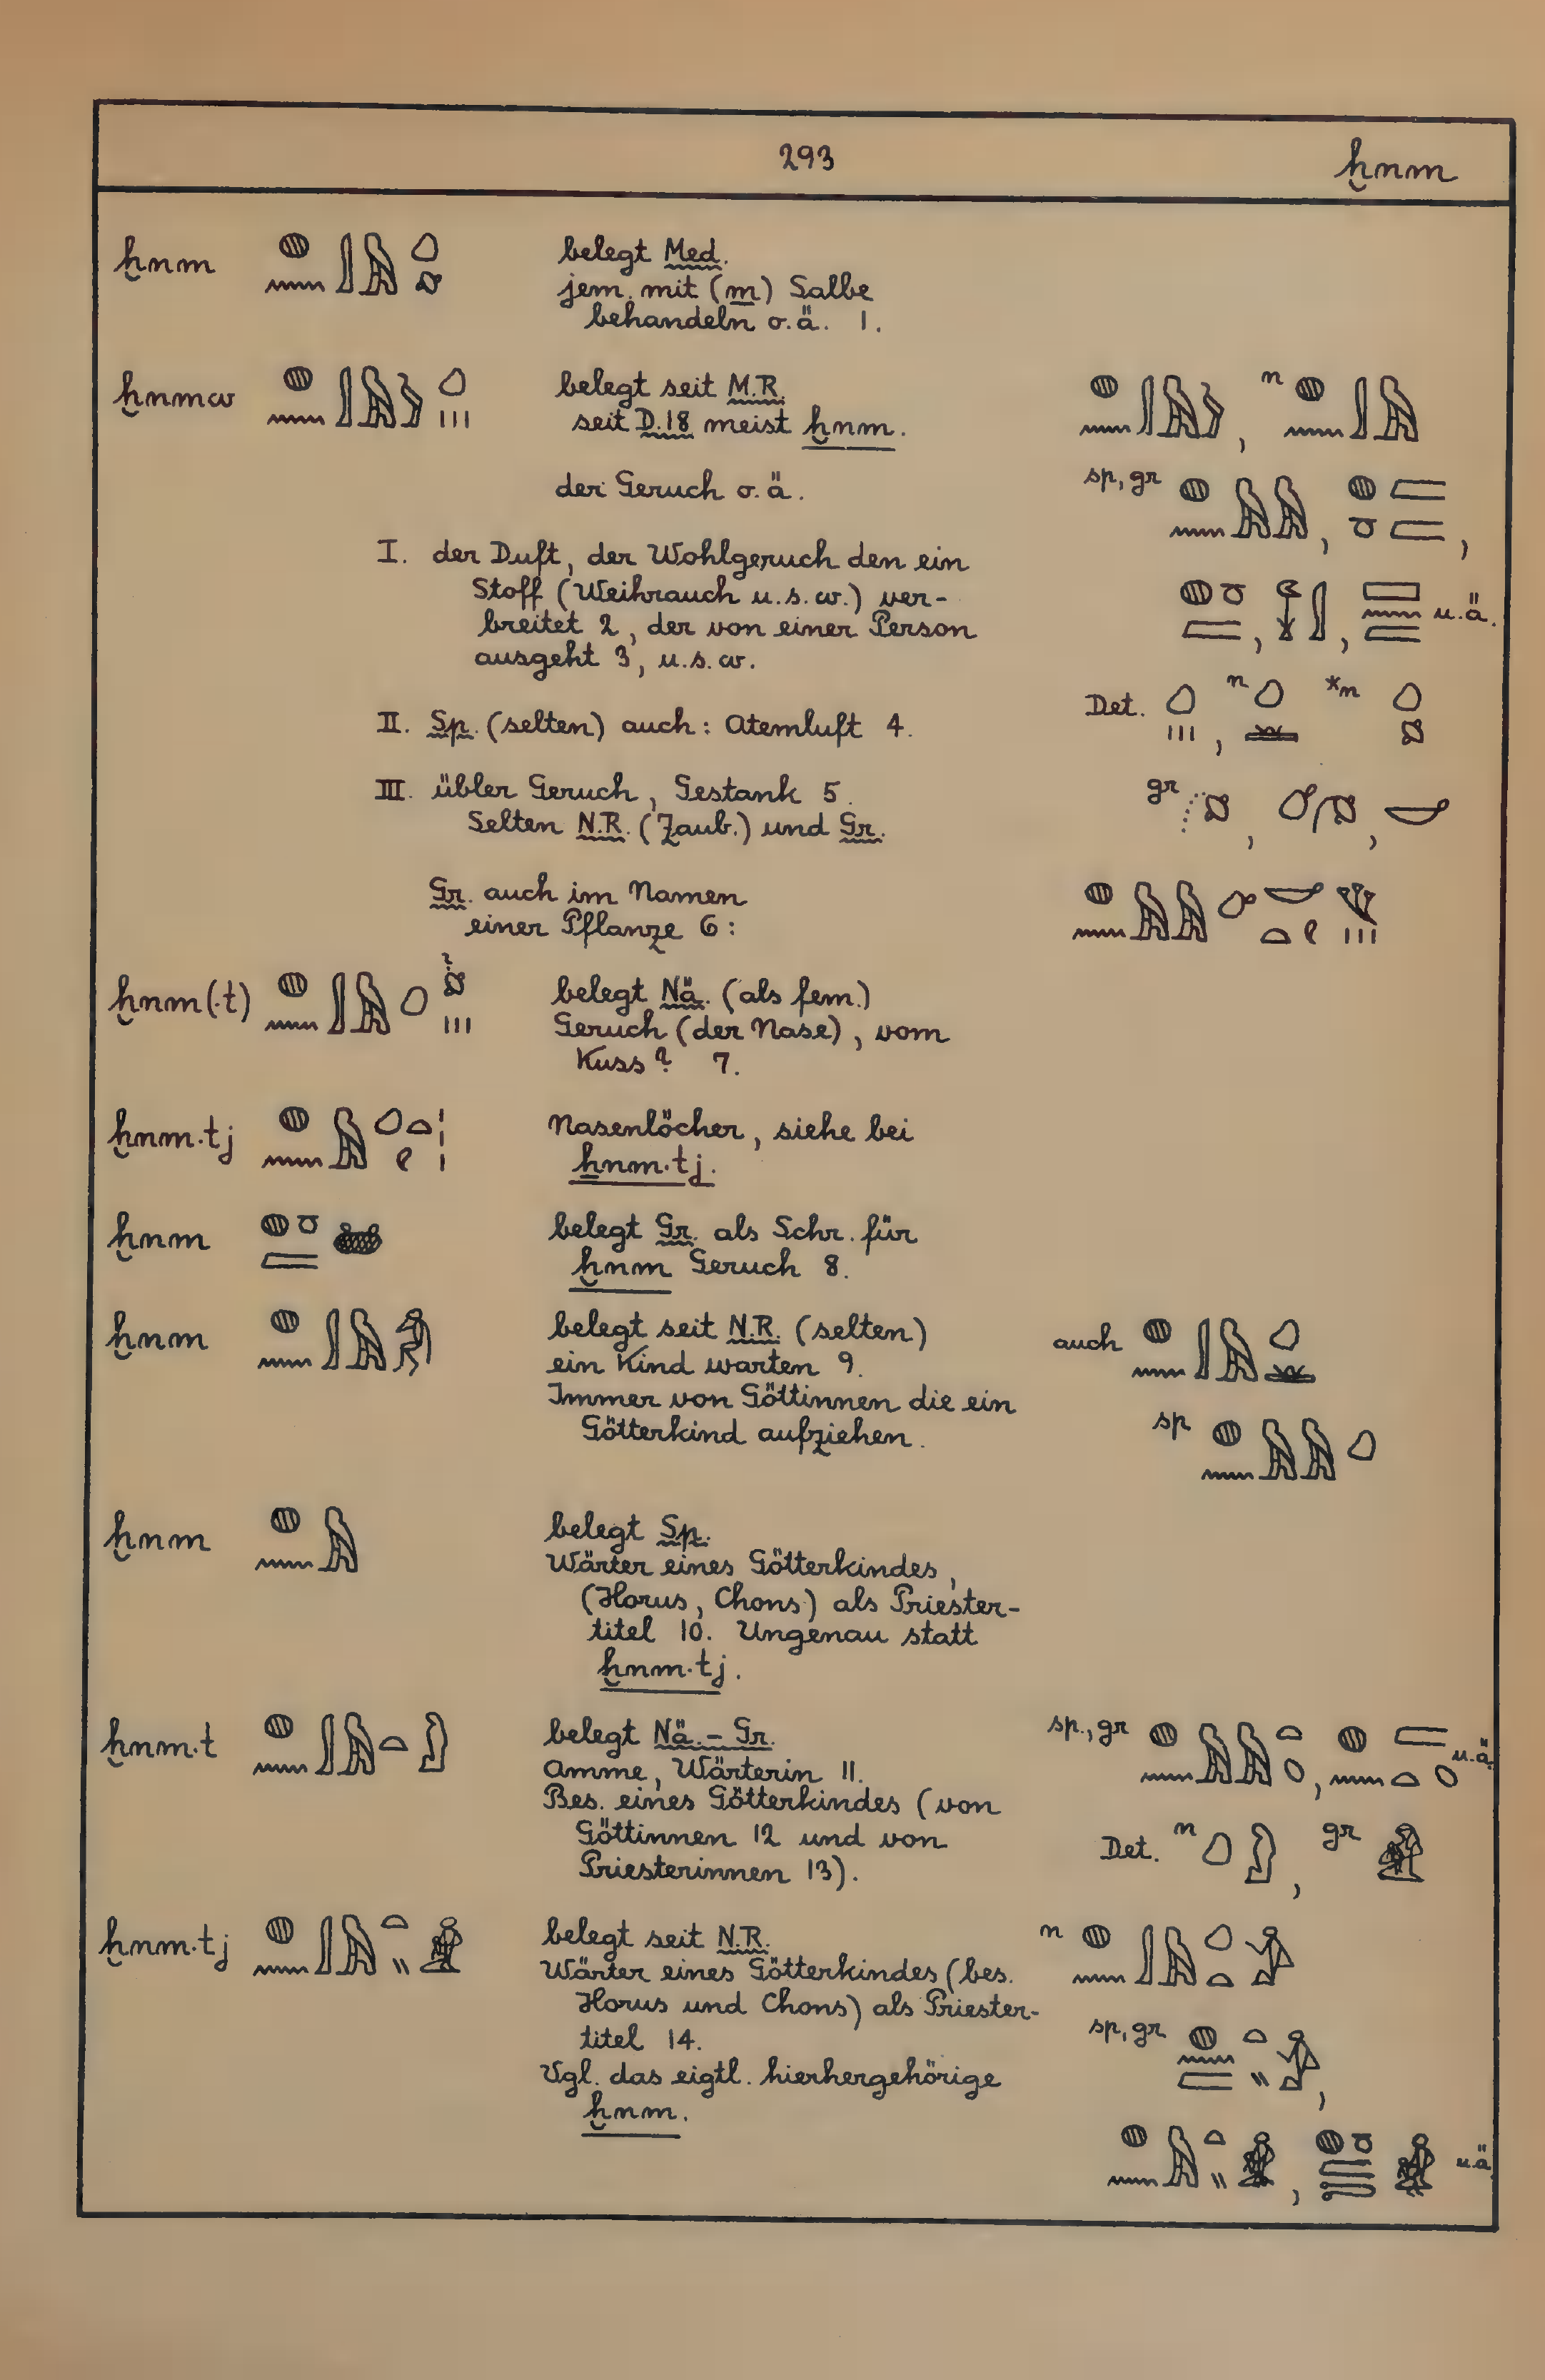 293
ḫnm
ḫnm belegt Med.
jem. mit (m) Salbe
behandeln o.ä. 1.
ḫnmw belegt seit M.R.
seit D.18 meist ḫnm.
n
der Geruch o.ä.
sp, gr
I. der Duft, der Wohlgeruch den ein
Stoff (Weihrauch u.s.w.) ver-
breitet 2, der von einer Person
ausgeht 3, u.s.w.
u.ä.
II. Sp. (selten) auch: Atemluft 4.
Det. n *n
III. übler Geruch, Gestank 5.
Selten N.R. (Zaub.) und Gr.
gr
Gr. auch im Namen
einer Pflanze 6:
ḫnm(.t) ? belegt Nä. (als fem.)
Geruch (der Nase), vom
Kuss? 7.
ḫnm.tj Nasenlöcher, siehe bei
ẖnm.tj.
ḫnm belegt Gr. als Schr. für
ḫnm Geruch 8.
ḫnm belegt seit N.R. (selten)
ein Kind warten 9.
Immer von Göttinnen die ein
Götterkind aufziehen.
auch
sp
ḫnm belegt Sp.
Wärter eines Götterkindes,
(Horus, Chons) als Priester-
titel 10. Ungenau statt
ḫnm.tj.
ḫnm.t belegt Nä. - Gr.
Amme, Wärterin 11.
Bes. eines Götterkindes (von
Göttinnen 12 und von
Priesterinnen 13).
sp., gr u.ä.
Det. n gr
ḫnm.tj belegt seit N.R.
Wärter eines Götterkindes (bes.
Horus und Chons) als Priester-
titel 14.
Vgl. das eigtl. hierhergehörige
ḫnm.
n
sp, gr
u.ä.